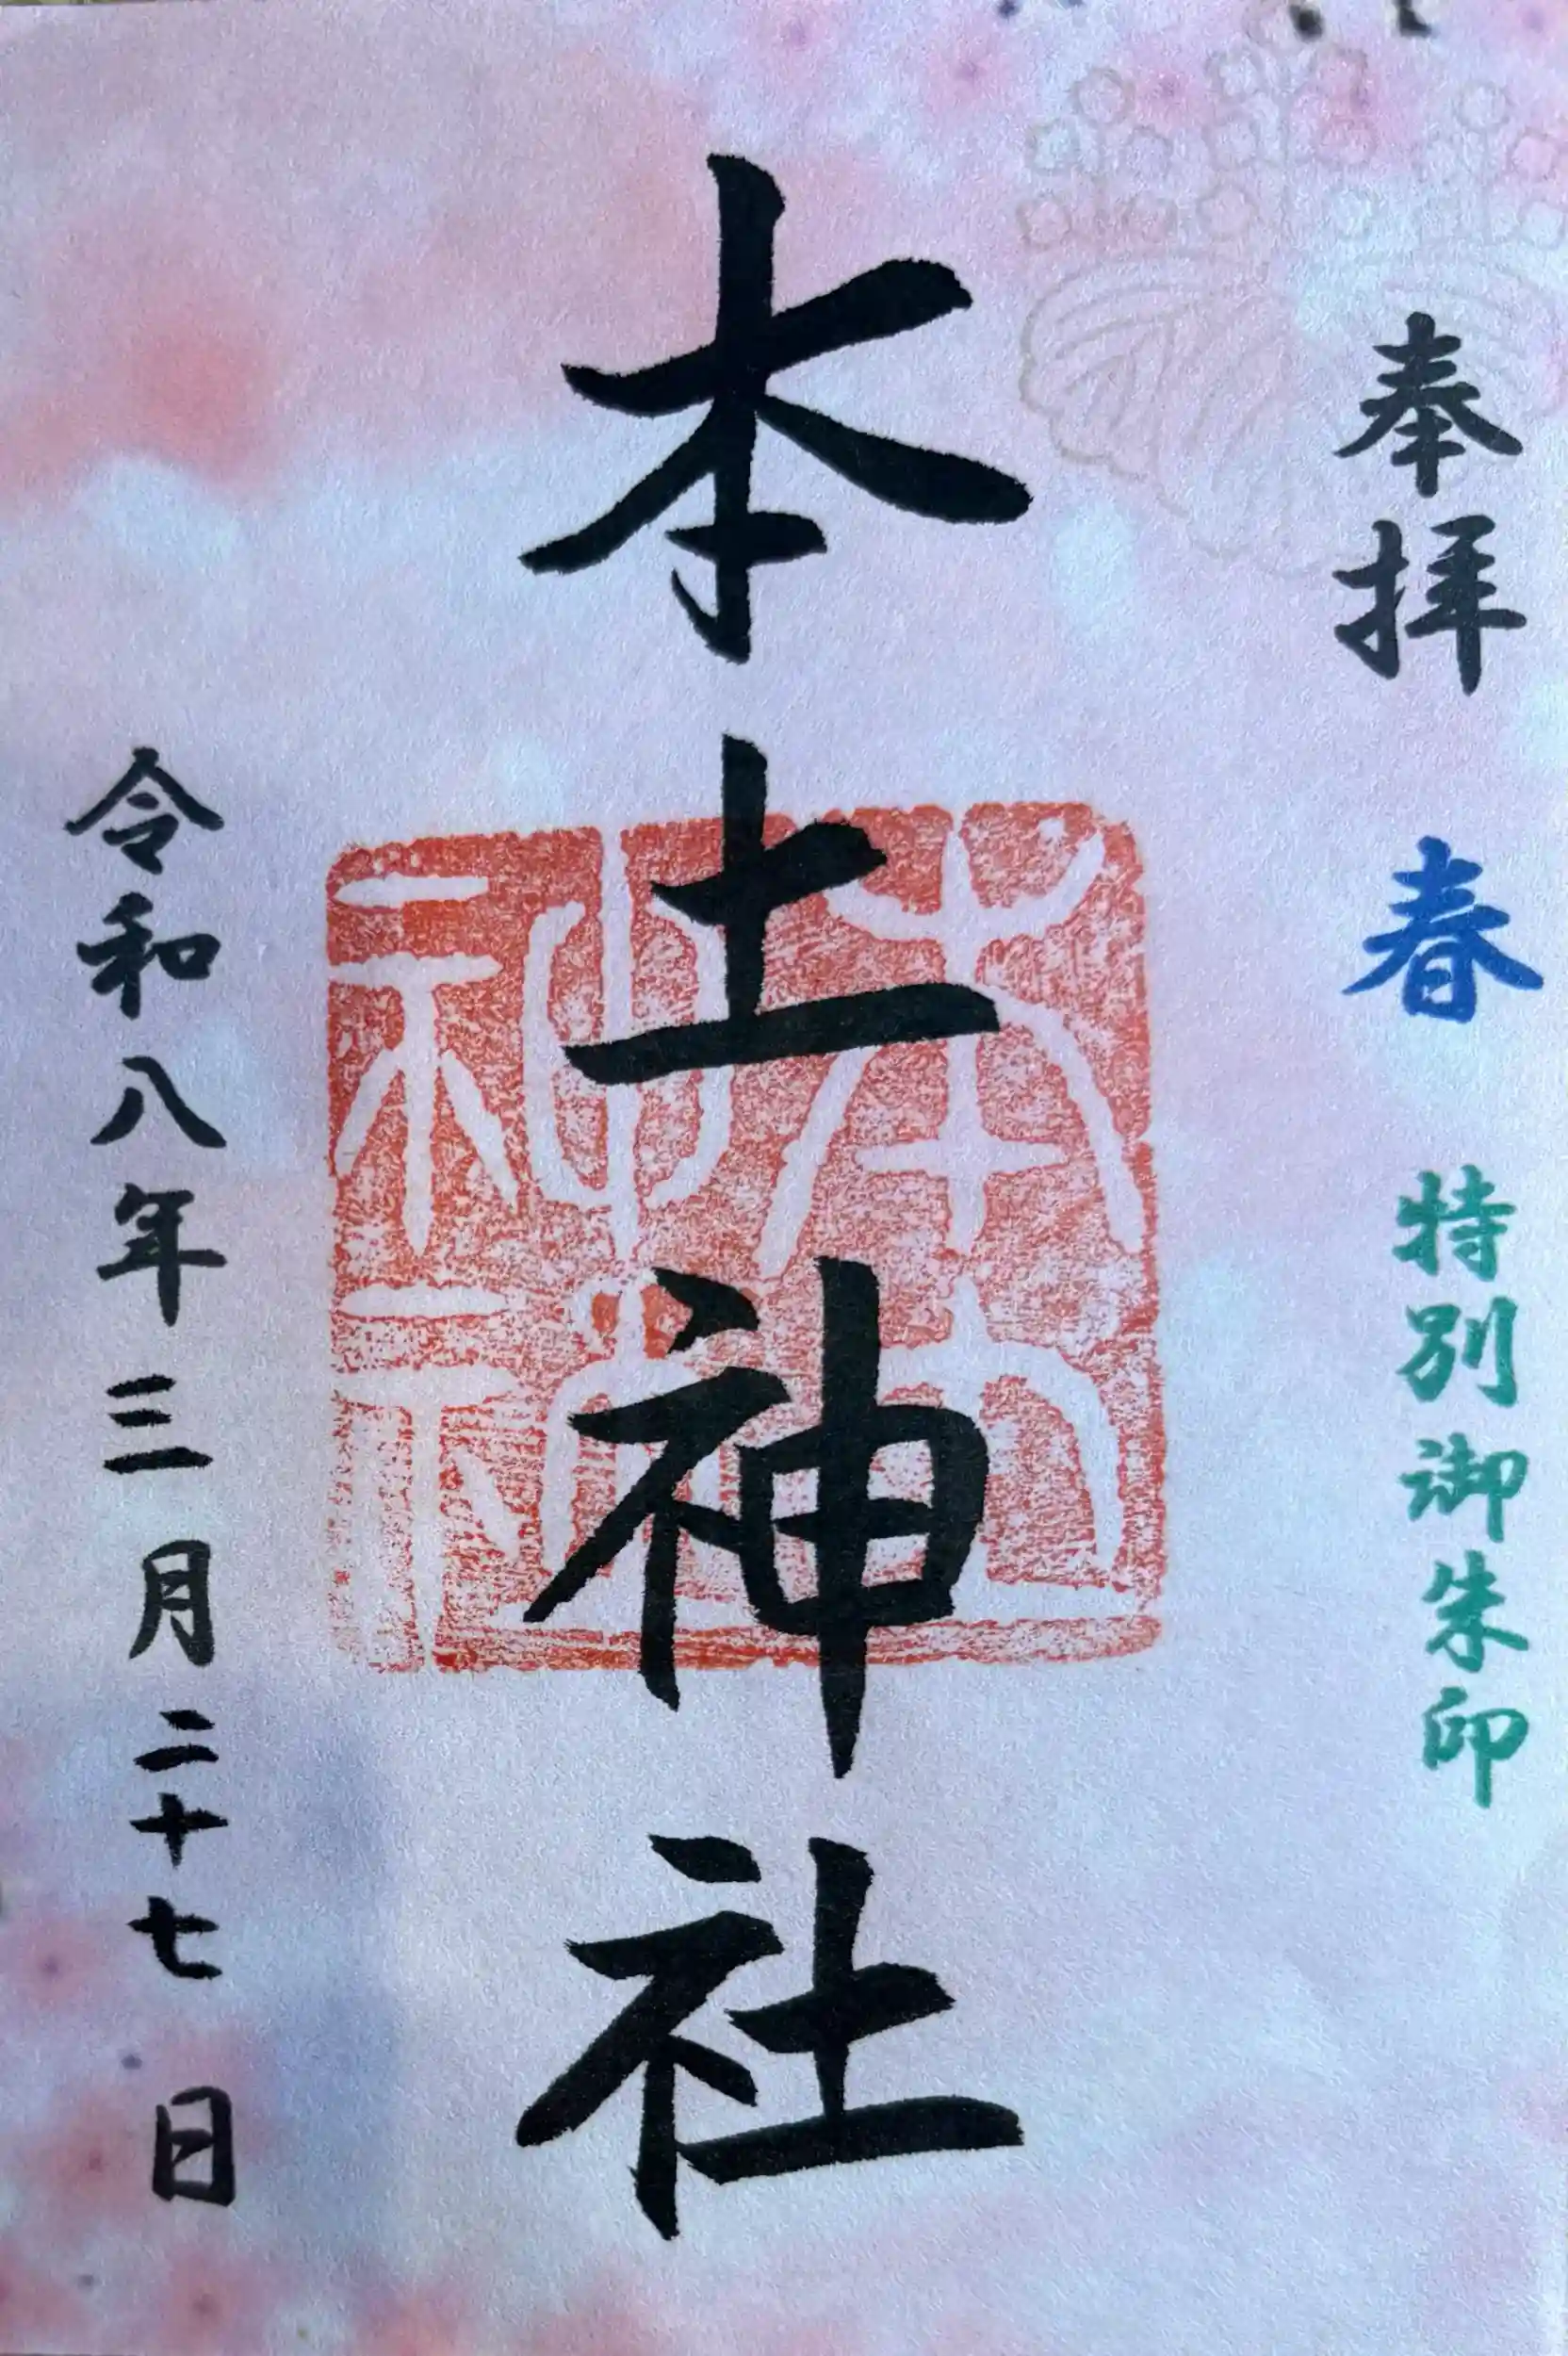 奉拝
春
特別御朱印
本土神社
令和八年三月二十七日